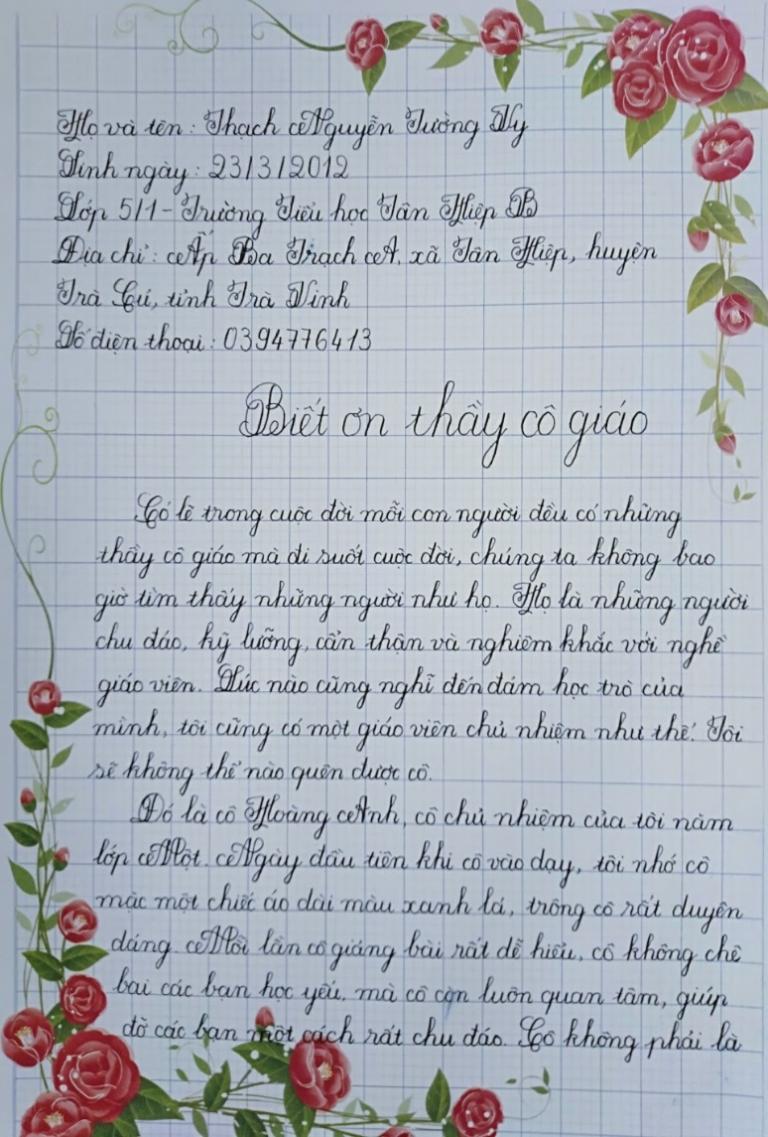 Họ và tên: Thạch Nguyễn Tường Vy
Sinh ngày: 23/3/2012
Lớp 5/1 - Trường Tiểu học Tân Hiệp B
Địa chỉ: Ấp Ba Trạch A, xã Tân Hiệp, huyện
Trà Cú, tỉnh Trà Vinh
Số điện thoại: 0394776413
Biết ơn thầy cô giáo
Có lẽ trong cuộc đời mỗi con người đều có những
thầy cô giáo mà đi suốt cuộc đời, chúng ta không bao
giờ tìm thấy những người như họ. Họ là những người
chu đáo, kỹ lưỡng, cẩn thận và nghiêm khắc với nghề
giáo viên. Lúc nào cũng nghĩ đến đám học trò của
mình, tôi cũng có một giáo viên chủ nhiệm như thế. Tôi
sẽ không thể nào quên được cô.
Đó là cô Hoàng Anh, cô chủ nhiệm của tôi năm
lớp Một. Ngày đầu tiên khi cô vào dạy, tôi nhớ cô
mặc một chiếc áo dài màu xanh lá, trông cô rất duyên
dáng. Mỗi lần cô giảng bài rất dễ hiểu, cô không chê
bai các bạn học yếu, mà cô còn luôn quan tâm, giúp
đỡ các bạn một cách rất chu đáo. Cô không phải là